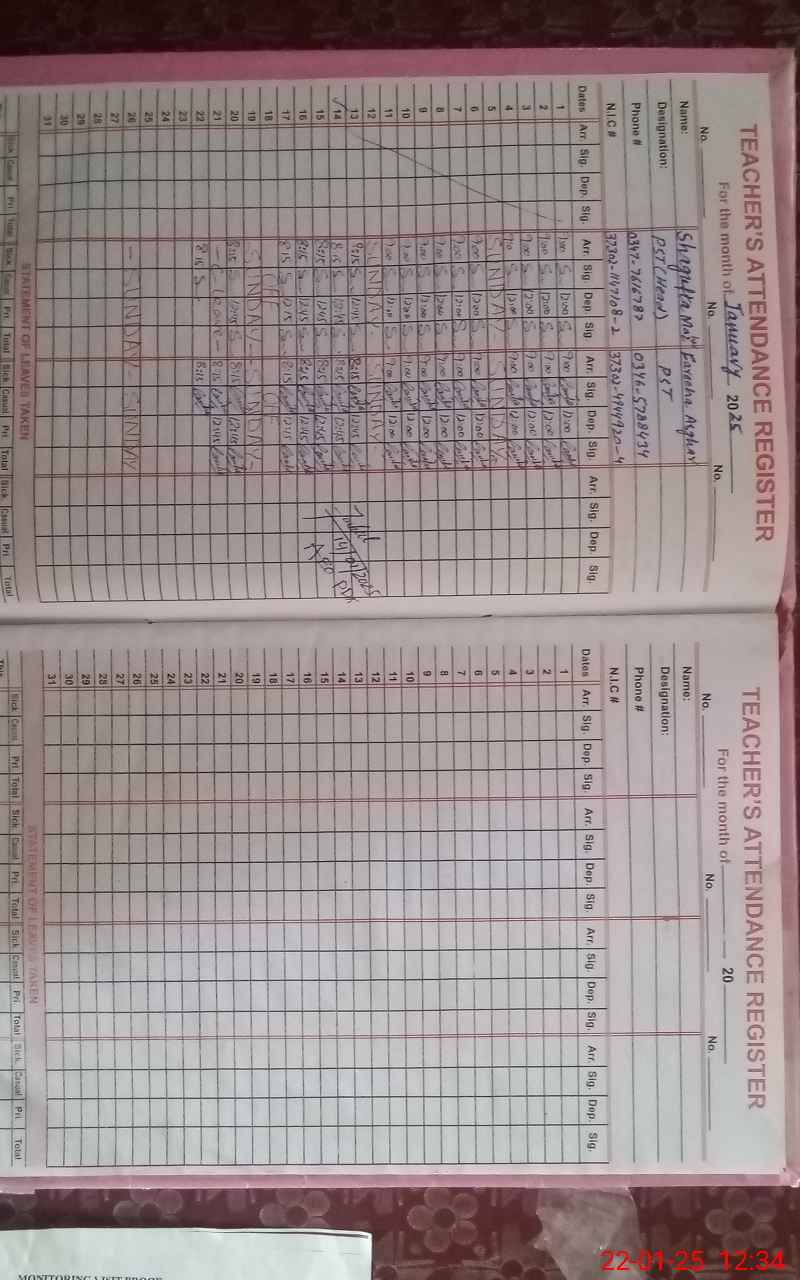 TEACHER'S ATTENDANCE REGISTER
For the month of January 2025
No. No. No.
Name: Shagufta Fareeha Asghar
Designation: PST (Head) PST
Phone # 0347-7616787 0346-5788434
N.I.C #
Dates Arr. Sig. Dep. Sig. Arr. Sig. Dep. Sig. Arr. Sig. Dep. Sig. Arr. Sig. Dep. Sig.
1 9:00 S 12:00 S 9:00 12:00
2 9:00 S 12:00 S 9:00 12:00
3 9:00 S 12:00 S 9:00 12:00
4 9:00 S 12:00 S 9:00 12:00
5 SUNDAY SUNDAY
6 9:00 S 12:00 S 9:00 12:00
7 9:00 S 12:00 S 9:00 12:00
8 9:00 S 12:00 S 9:00 12:00
9 9:00 S 12:00 S 9:00 12:00
10 9:00 S 12:00 S 9:00 12:00
11 9:00 S 12:00 S 9:00 12:00
12 SUNDAY SUNDAY
13 8:15 S 12:45 S 8:15 12:45
14 8:15 S 12:45 S 8:15 12:45 14/01/2025
15 8:15 S 12:45 S 8:15 12:45
16 8:15 S 12:45 S 8:15 12:45
17 8:15 S 12:15 S 8:15 12:15
18 OFF OFF
19 SUNDAY SUNDAY
20 8:15 S 12:45 S 8:15 12:45
21 8:15 12:45
22 8:15 S 8:15
23
24
25
26 SUNDAY SUNDAY
27
28
29
30
31
STATEMENT OF LEAVES TAKEN
Sick Casual Pri. Total Sick Casual Pri. Total Sick Casual Pri. Total Sick Casual Pri. Total
TEACHER'S ATTENDANCE REGISTER
For the month of 20
No. No. No.
Name:
Designation:
Phone #
N.I.C #
Dates Arr. Sig. Dep. Sig. Arr. Sig. Dep. Sig. Arr. Sig. Dep. Sig. Arr. Sig. Dep. Sig.
1
2
3
4
5
6
7
8
9
10
11
12
13
14
15
16
17
18
19
20
21
22
23
24
25
26
27
28
29
30
31
STATEMENT OF LEAVES TAKEN
Sick Casual Pri. Total Sick Casual Pri. Total Sick Casual Pri. Total Sick Casual Pri. Total
MONITORING VISIT PROOF
22-01-25 12:34